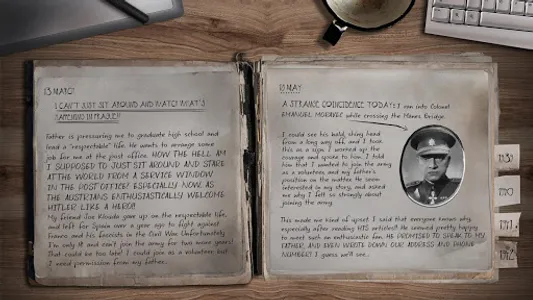 13 MARCH
I CAN'T JUST SIT AROUND AND WATCH WHAT'S
HAPPENING IN PRAGUE!!
Father is pressuring me to graduate high school and
lead a "respectable" life. He wants to arrange some
job for me at the post office. HOW THE HELL AM
I SUPPOSED TO JUST SIT AROUND AND STARE
AT THE WORLD FROM A SERVICE WINDOW
IN THE POST OFFICE? ESPECIALLY NOW AS
THE AUSTRIANS ENTHUSIASTICALLY WELCOME
HITLER LIKE A HERO!
My friend Joe Klouda gave up on the respectable life,
and left for Spain over a year ago to fight against
Franco and his fascists in the Civil War. Unfortunately
I'm only 18 and can't join the army for two more years!
That could be too late! I could join as a volunteer but
I need permission from my father.
10 MAY
A STRANGE COINCIDENCE TODAY: I ran into Colonel
EMANUEL MORAVEC while crossing the Manes Bridge.
I could see his bald, shiny head
from a long way off, and I took
this as a sign. I worked up the
courage and spoke to him. I told
him that I wanted to join the army
as a volunteer, and my father's
position on the matter. He seem
interested in my story, and asked
me why I felt so strongly about
joining the army.
This made me kind of upset. I said that everyone knows why,
especially after reading HIS articles! He seemed pretty happy
to meet such an enthusiastic fan. HE PROMISED TO SPEAK TO MY
FATHER, AND EVEN WROTE DOWN OUR ADDRESS AND PHONE
NUMBER! I guess we'll see...
1939
1940
1941
1942